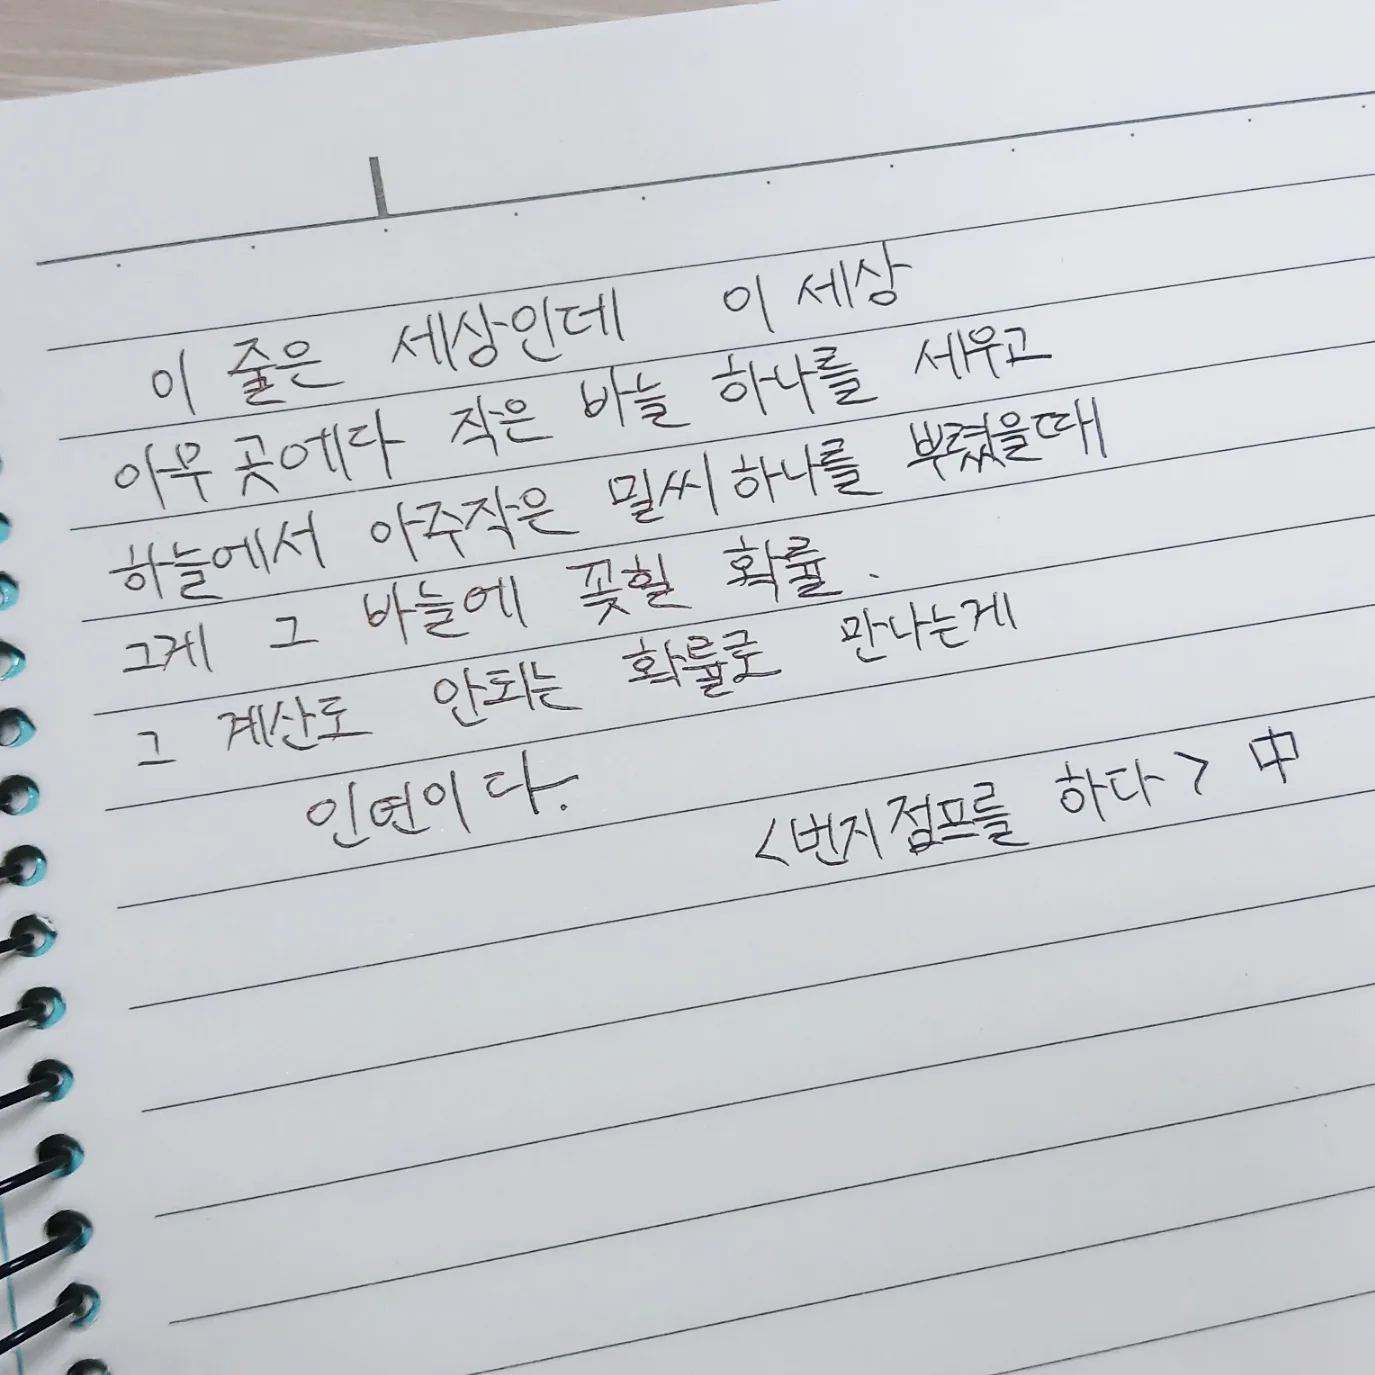 이 줄은 세상인데 이 세상
아무 곳에다 작은 바늘 하나를 세우고
하늘에서 아주작은 밀씨하나를 뿌렸을때
그게 그 바늘에 꽂힐 확률.
그 계산도 안되는 확률로 만나는게
인연이다.
<번지점프를 하다> 中